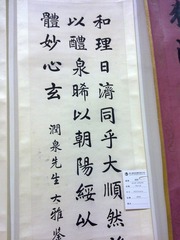 和理日濟同乎大順然
以醴泉晞以朝陽綏以
體妙心玄
潤泉先生大雅鑒